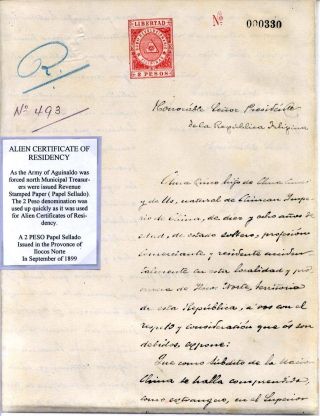 LIBERTAD
2 PESOS
Nº 000330
R.
Nº 493
Honorable Señor Presidente
de la República Filipina
ALIEN CERTIFICATE OF
RESIDENCY
As the Army of Aguinaldo was
forced north Municipal Treasur-
ers were issued Revenue
Stamped Paper ( Papel Sellado).
The 2 Peso denomination was
used up quickly as it was used
for Alien Certificates of Resi-
dency.
A 2 PESO Papel Sellado
Issued in the Provonce of
Ilocos Norte
In September of 1899
hijo de
y de natural de Imperio
de China, de diez y ocho años de
edad, de estado soltero, profesión
comerciante, y residente acciden-
talmente en esta localidad y pro-
vincia de Ilocos Norte, territorio
de esta República, a vos con el
respeto y consideración que os son
debidos, expone:
Que como súbdito de la nación
China se halla comprendido,
como extrangero, en el Superior